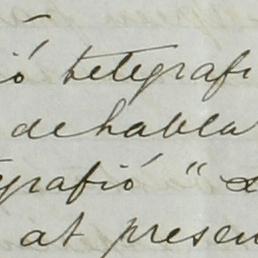 ió telegrafi
dehabla
grafió" 
at presen